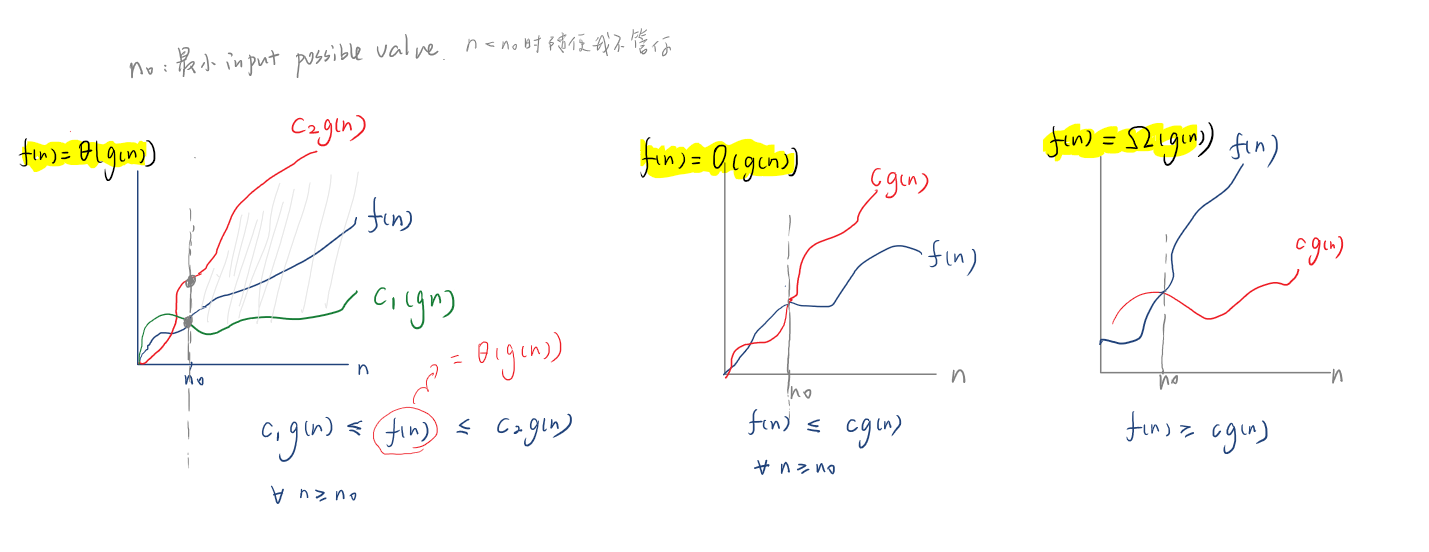 n₀:最小 input possible value. n<n₀时随便我不管你
f(n) = θ(g(n))
C₂g(n)
f(n)
C₁(gn)
n₀
n
= θ(g(n))
C₁g(n) ≤ f(n) ≤ C₂g(n)
∀ n ≥ n₀
f(n) = O(g(n))
cg(n)
f(n)
n₀
n
f(n) ≤ cg(n)
∀ n ≥ n₀
f(n) = Ω(g(n))
f(n)
cg(n)
n₀
n
f(n) ≥ cg(n)